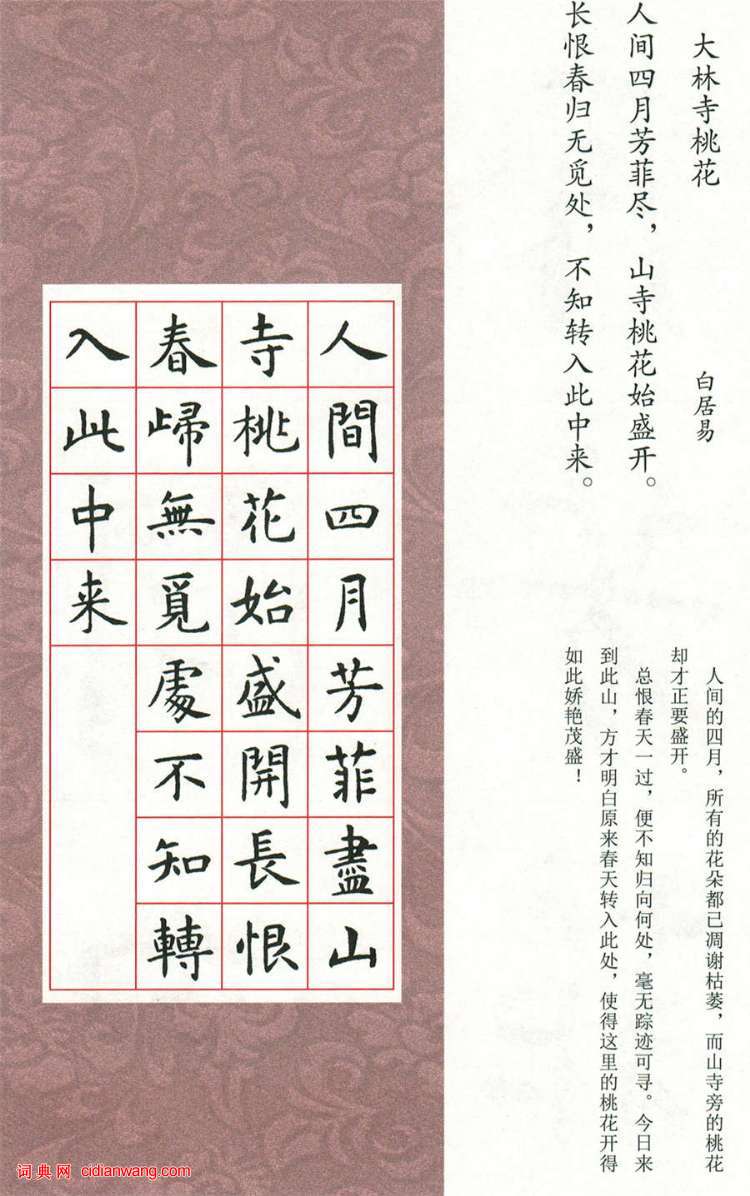 大林寺桃花
白居易
人间四月芳菲尽，山寺桃花始盛开。
长恨春归无觅处，不知转入此中来。
人间的四月，所有的花朵都已凋谢枯萎，而山寺旁的桃花
却才正要盛开。
总恨春天一过，便不知归向何处，毫无踪迹可寻。今日来
到此山，方才明白原来春天转入此处，使得这里的桃花开得
如此娇艳茂盛！
人間四月芳菲盡山
寺桃花始盛開長恨
春歸無覓處不知轉
入此中来
词典网 cidianwang.com